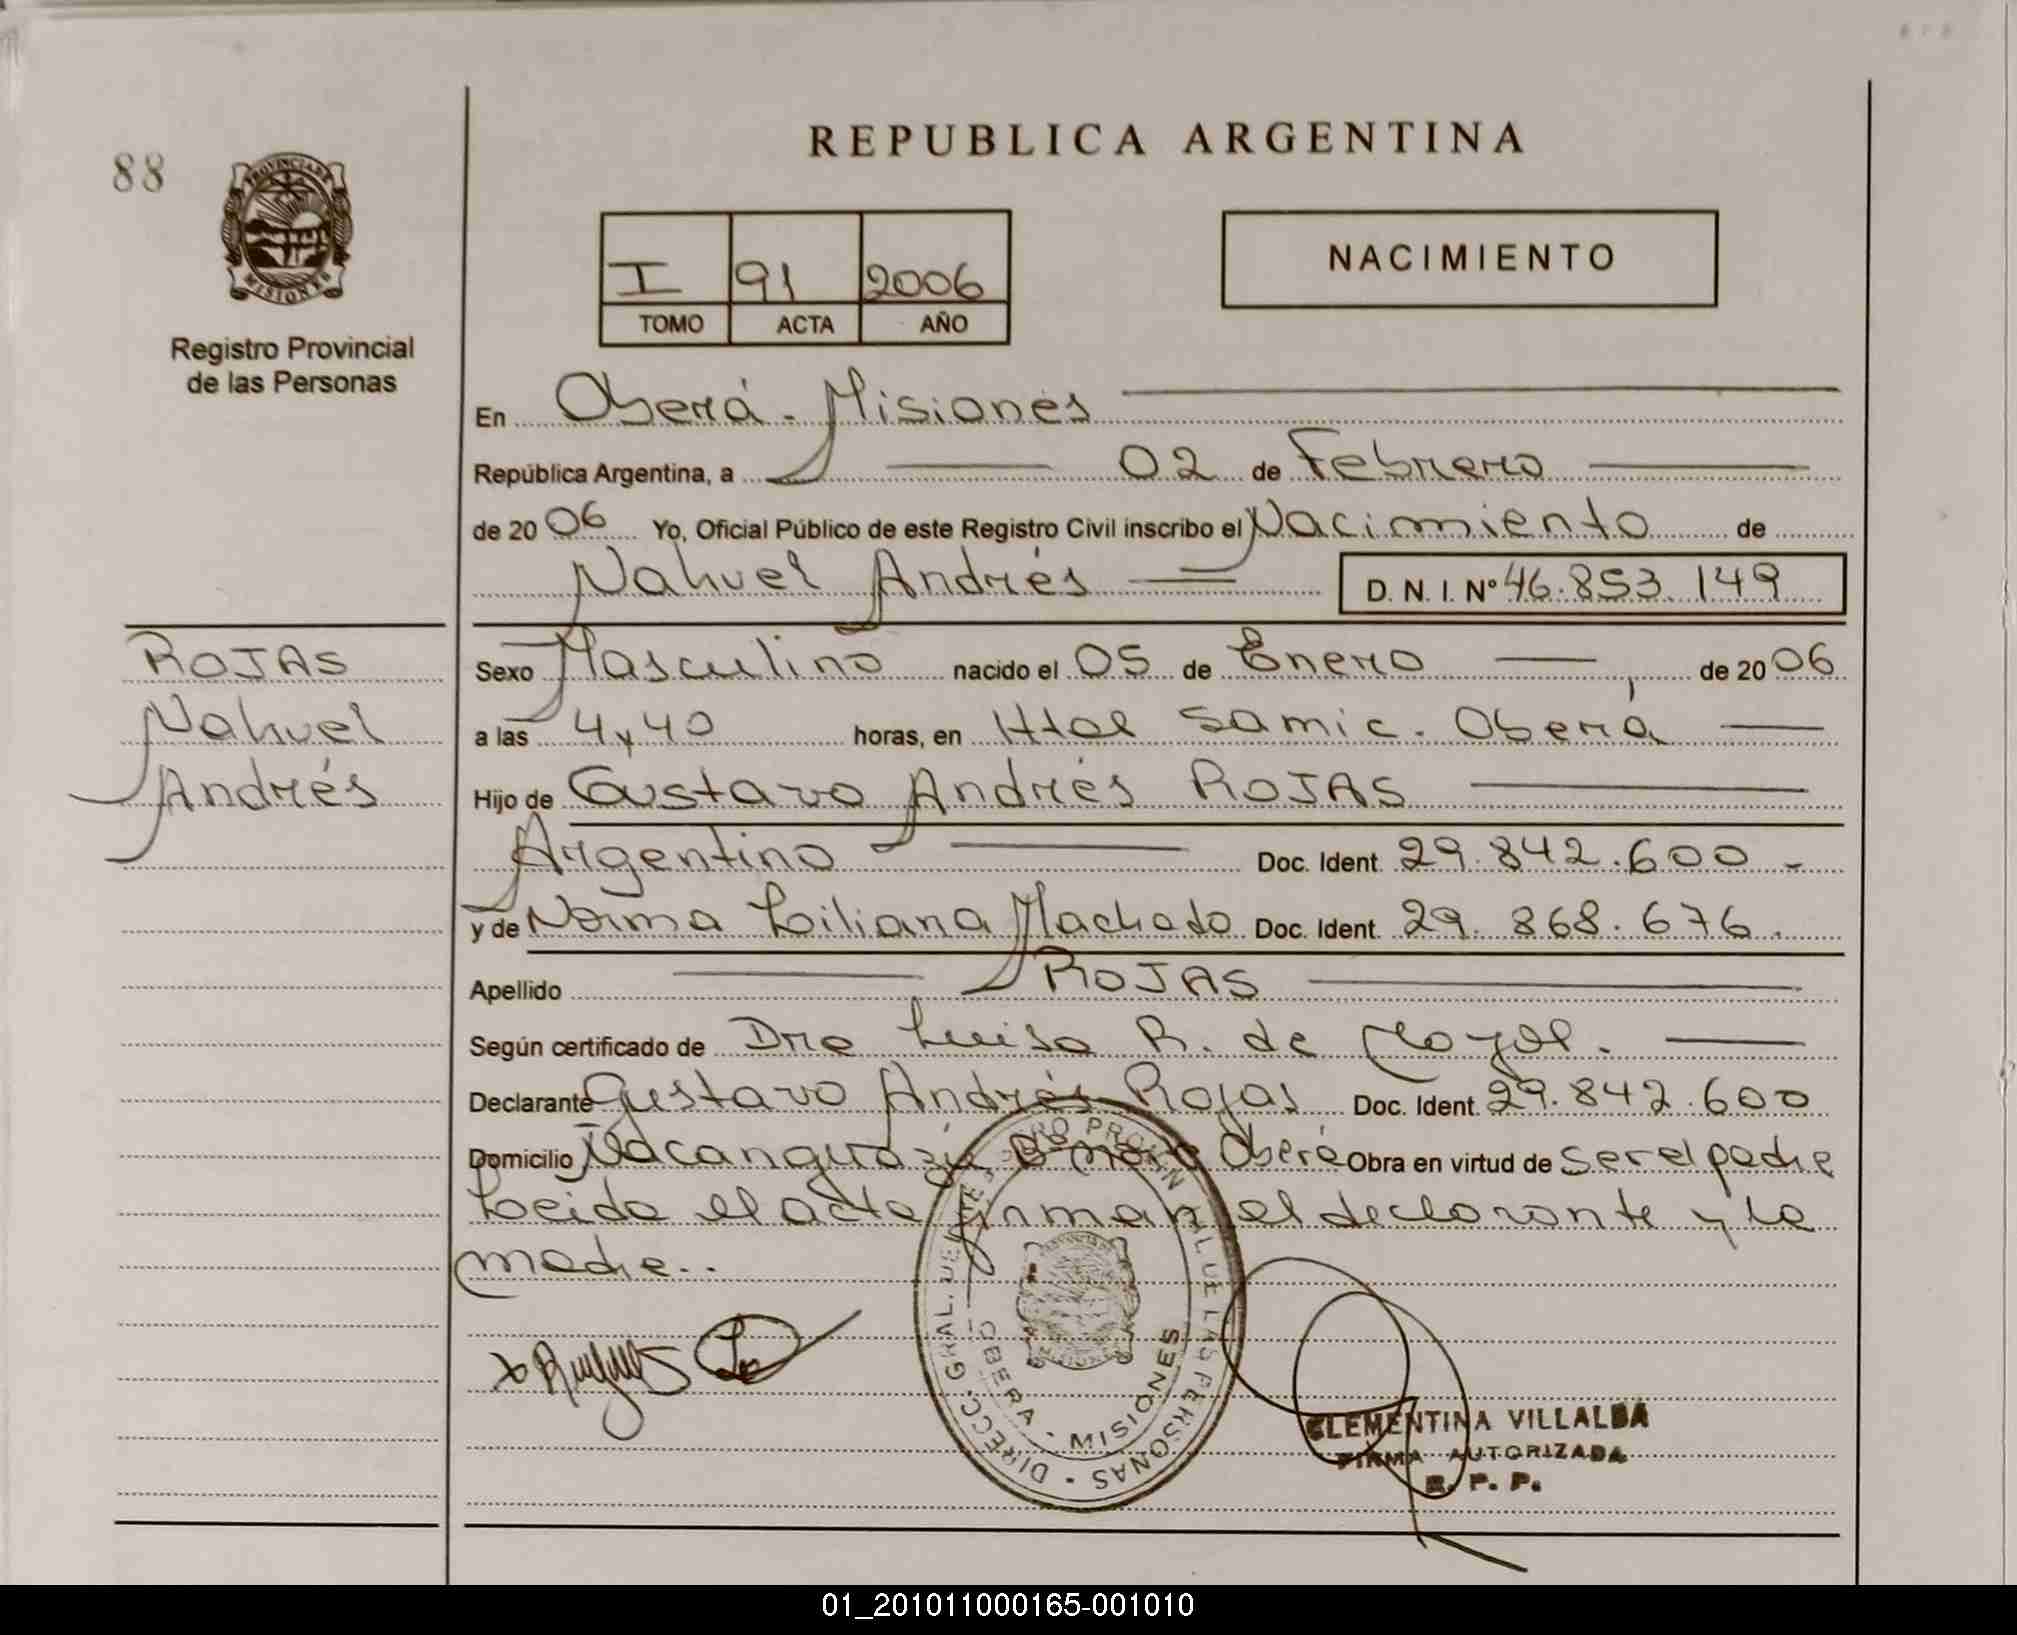 REPUBLICA ARGENTINA
88
PROVINCIA DE
MISIONES
Registro Provincial
de las Personas
I 91 2006
TOMO ACTA AÑO
NACIMIENTO
En Oberá - Misiones
República Argentina, a 02 de Febrero
de 2006 Yo, Oficial Público de este Registro Civil inscribo el Nacimiento de
Nahuel Andrés D. N. I. Nº 46.853.149
ROJAS
Nahuel
Andrés
Sexo Masculino nacido el 05 de Enero, de 2006
a las 4 y 40 horas, en Htal Samic. Oberá
Hijo de Gustavo Andrés ROJAS
Argentino Doc. Ident. 29.842.600.-
y de Norma Liliana Machado Doc. Ident. 29.868.676.
Apellido ROJAS
Según certificado de Dra Luisa R. de
Declarante Gustavo Andrés Rojas Doc. Ident. 29.842.600
Domicilio Oberá Obra en virtud de ser el padre
Leida el acta firman el declarante y la
madre..
DIRECC. GRAL. DEL REGISTRO PROVINCIAL DE LAS PERSONAS
OBERA - MISIONES
CLEMENTINA VILLALBA
FIRMA AUTORIZADA
R. P. P.
01_201011000165-001010